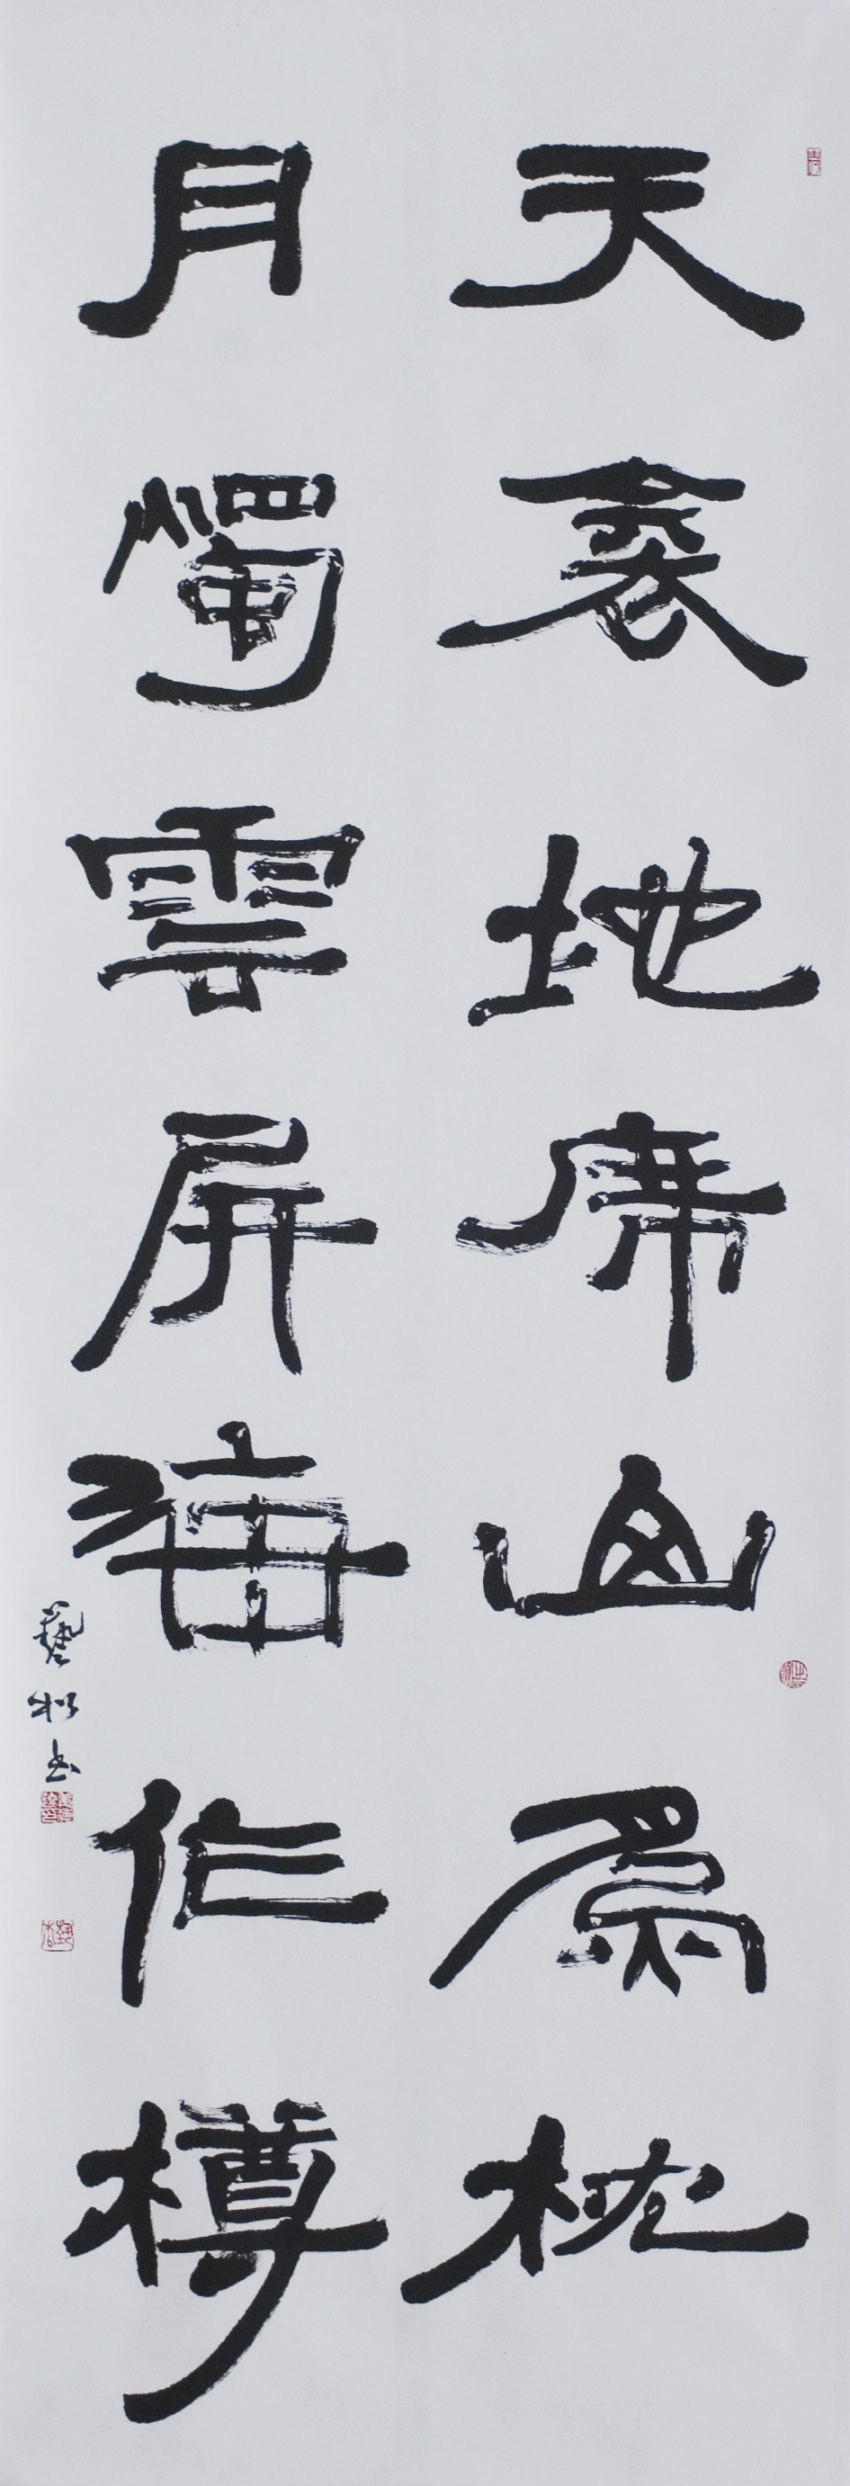 天衾地席山爲枕
月燭雲屏海作樽
藝松書